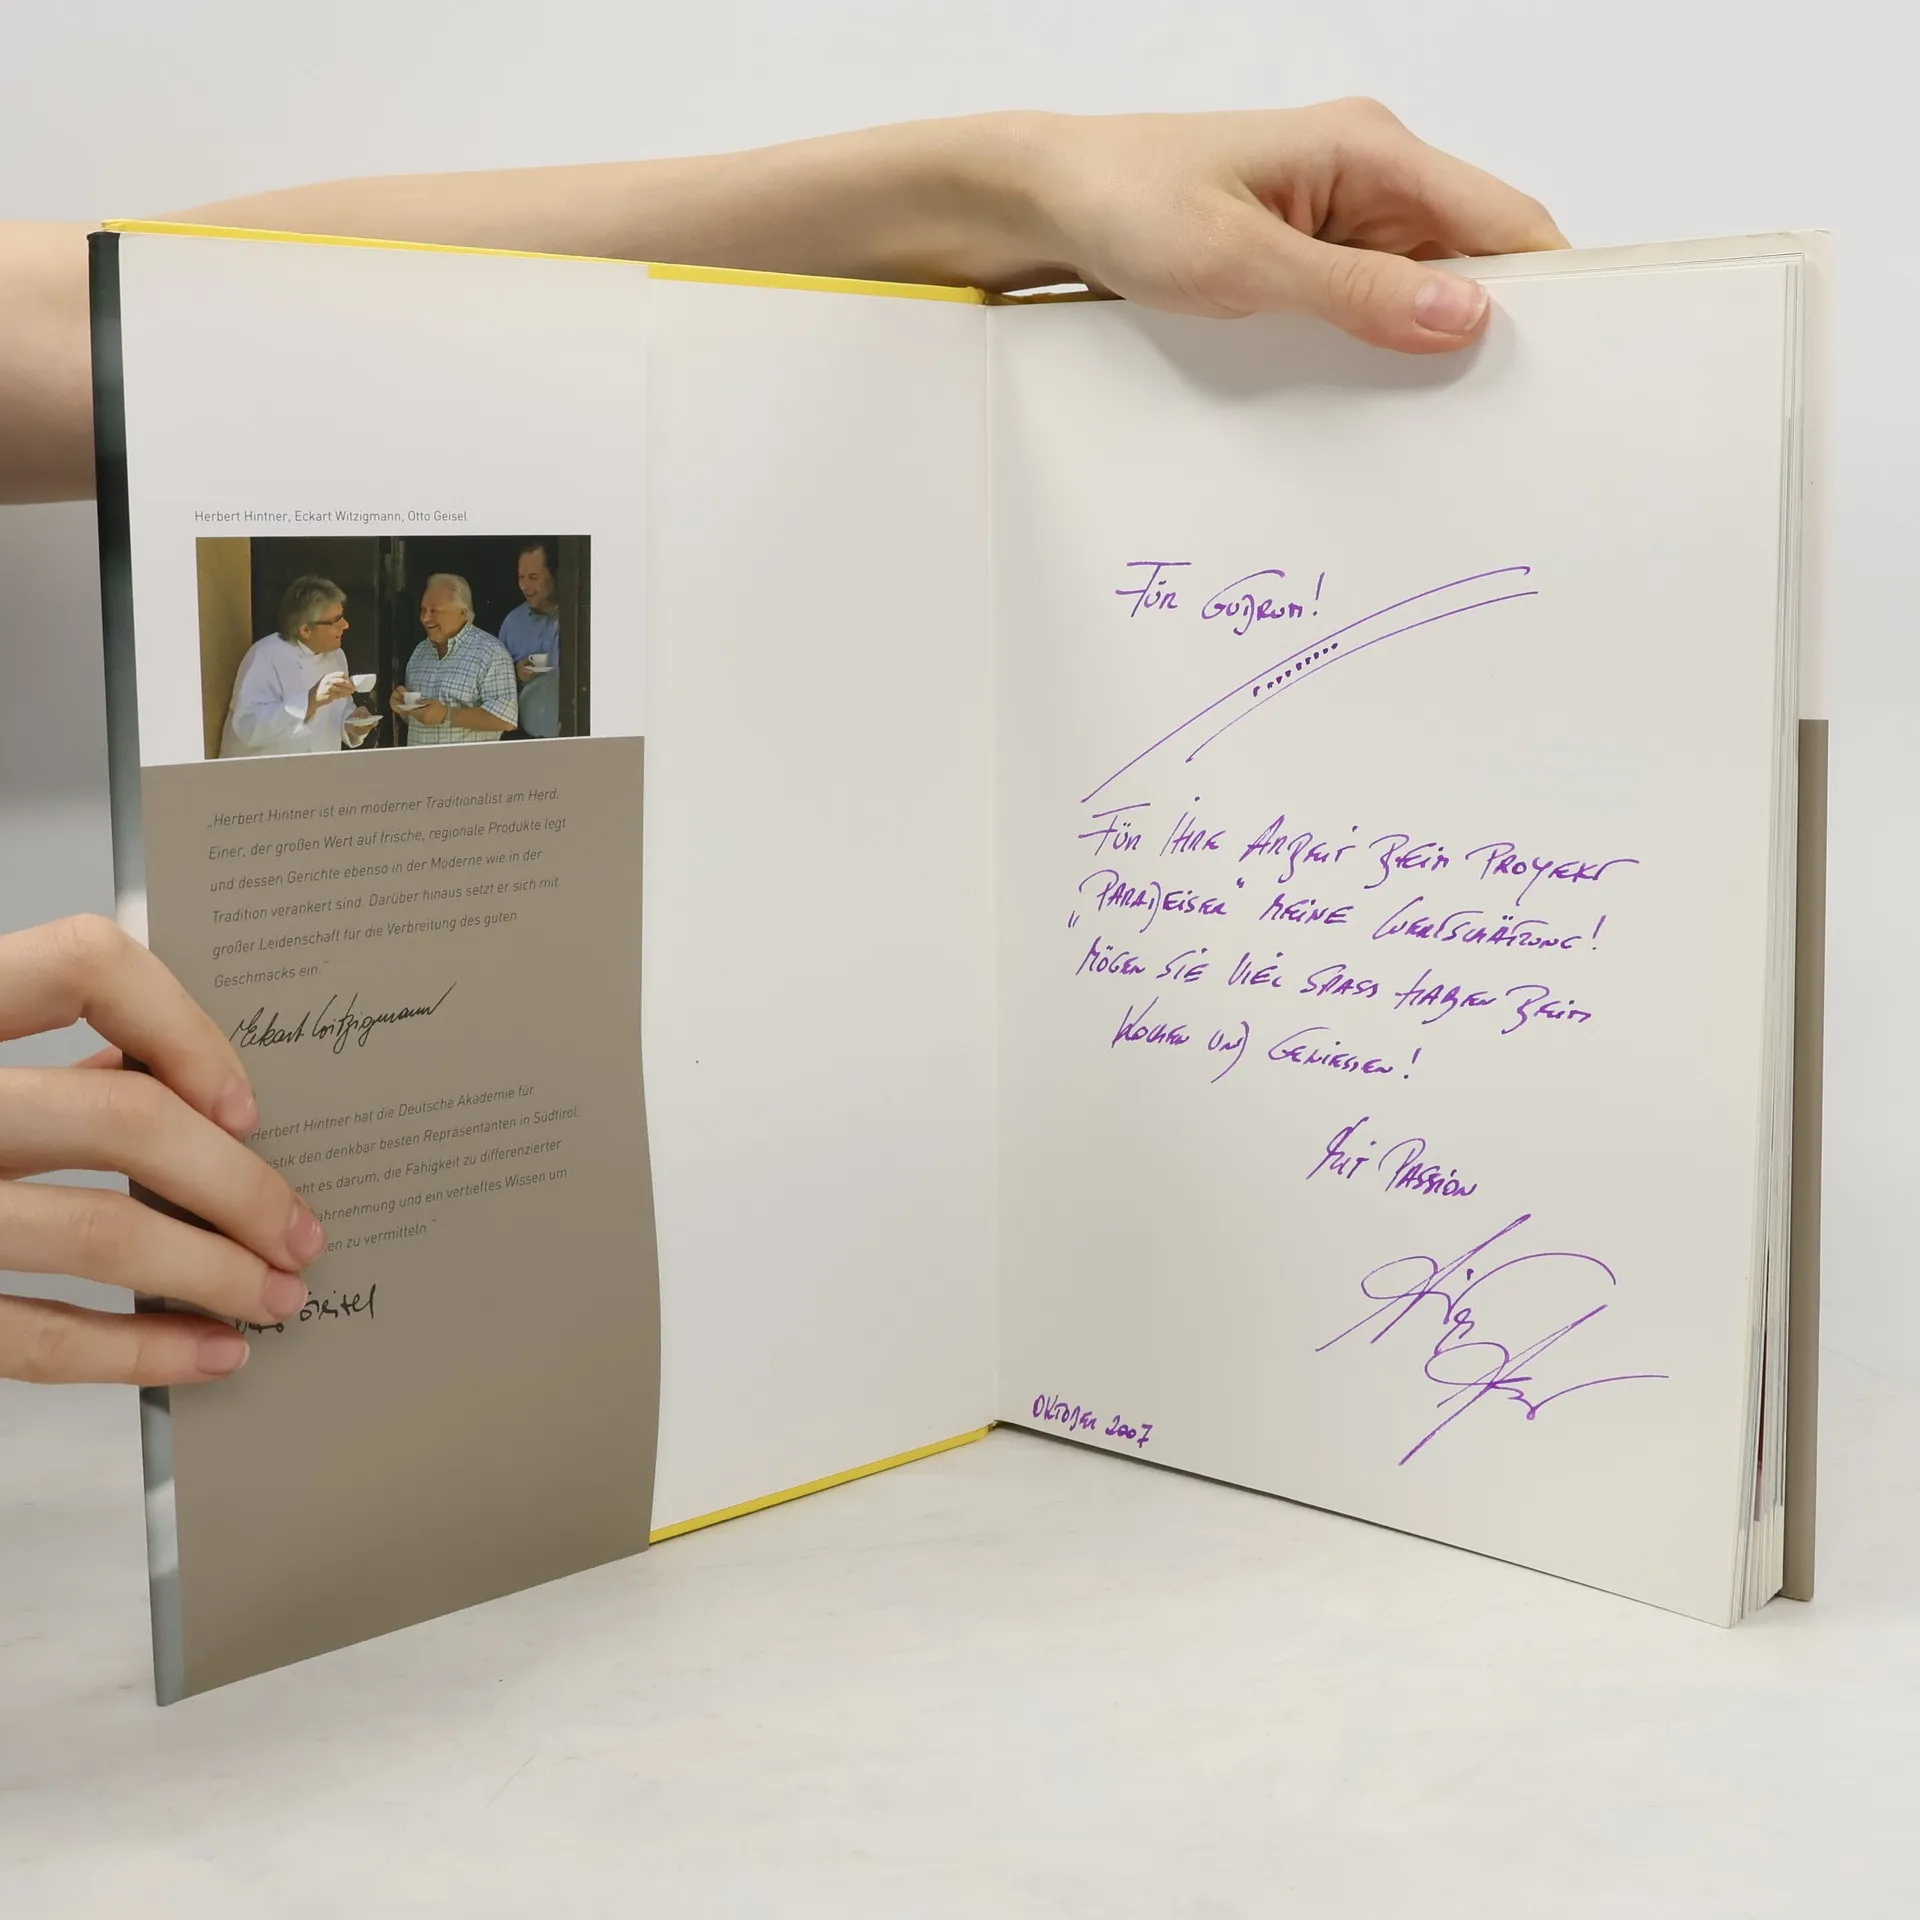 Herbert Hintner, Eckart Witzigmann, Otto Geisel
„Herbert Hintner ist ein moderner Traditionalist am Herd.
Einer, der großen Wert auf frische, regionale Produkte legt
und dessen Gerichte ebenso in der Moderne wie in der
Tradition verankert sind. Darüber hinaus setzt er sich mit
großer Leidenschaft für die Verbreitung des guten
Geschmacks ein."
Eckart Witzigmann
Herbert Hintner hat die Deutsche Akademie für
istik den denkbar besten Repräsentanten in Südtirol.
eht es darum, die Fähigkeit zu differenzierter
ahrnehmung und ein vertieftes Wissen um
en zu vermitteln."
Geisel
FÜR GUDRUN!
FÜR IHRE ARBEIT BEIM PROYEKT
„PARADEISER" MEINE WERTSCHÄTZUNG!
MÖGEN SIE VIEL SPASS HABEN BEIM
KOCHEN UND GENIESSEN!
MIT PASSION
OKTOBER 2007